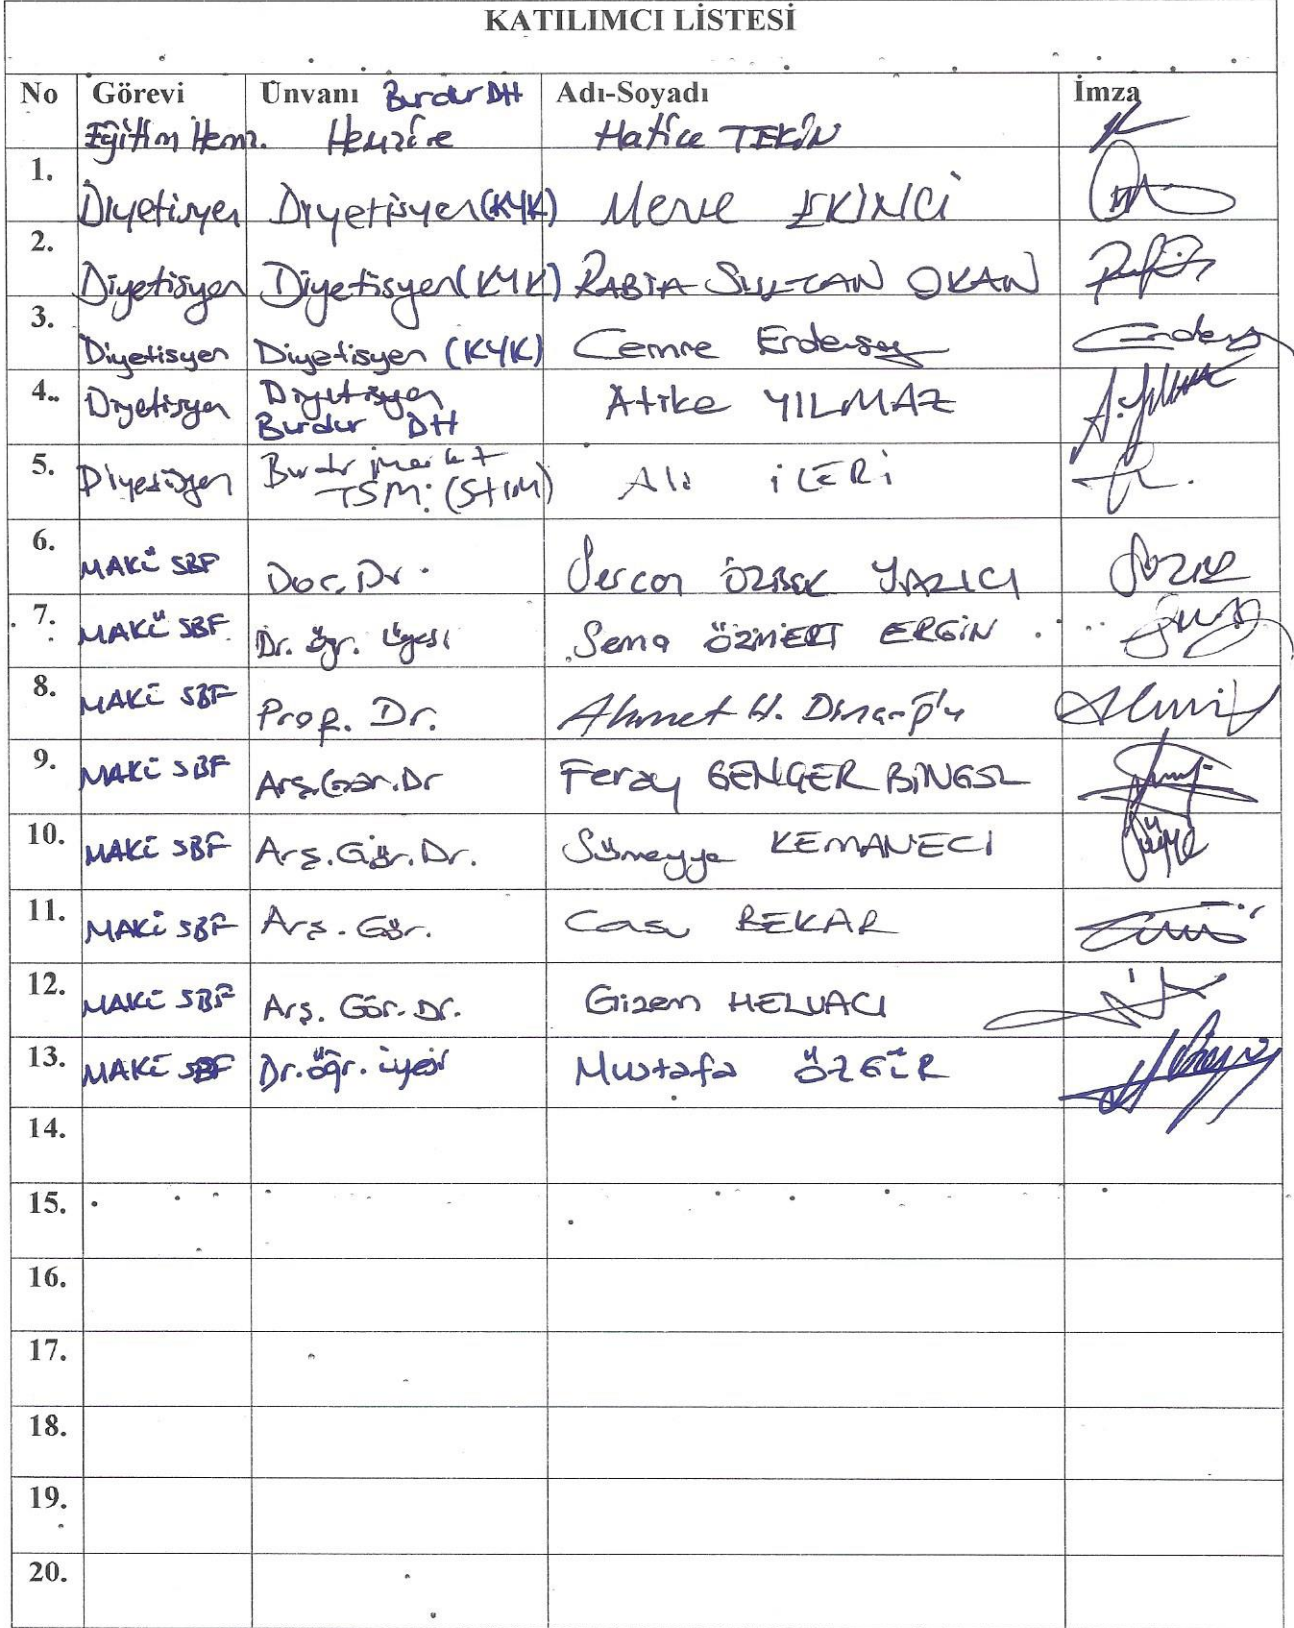 KATILIMCI LİSTESİ
No Görevi Ünvanı Burdur DH Adı-Soyadı İmza
Eğitim Hemş. Hemşire Hatice TEKİN
1. Diyetisyen Diyetisyen (KYK) Merve EKİNCİ
2. Diyetisyen Diyetisyen (KYK) RABİA SULTAN OKAN
3. Diyetisyen Diyetisyen (KYK) Cemre Erdersoy
4. Diyetisyen Diyetisyen Atike YILMAZ
Burdur DH
5. Diyetisyen Burdur Ali İLERİ
TSM
6. MAKÜ SBF Doç. Dr. Sercan ÖZBEK YAZICI
7. MAKÜ SBF Dr. Öğr. Üyesi Sema ÖZMERT ERGİN
8. MAKÜ SBF Prof. Dr. Ahmet H. Dinçoğlu
9. MAKÜ SBF Arş. Gör. Dr Feray GENÇER BİNGÖL
10. MAKÜ SBF Arş. Gör. Dr. Sümeyye KEMANECİ
11. MAKÜ SBF Arş. Gör. Cansu BEKAR
12. MAKÜ SBF Arş. Gör. Dr. Gizem HELVACI
13. MAKÜ SBF Dr. Öğr. Üyesi Mustafa ÖZGÜR
14.
15.
16.
17.
18.
19.
20.